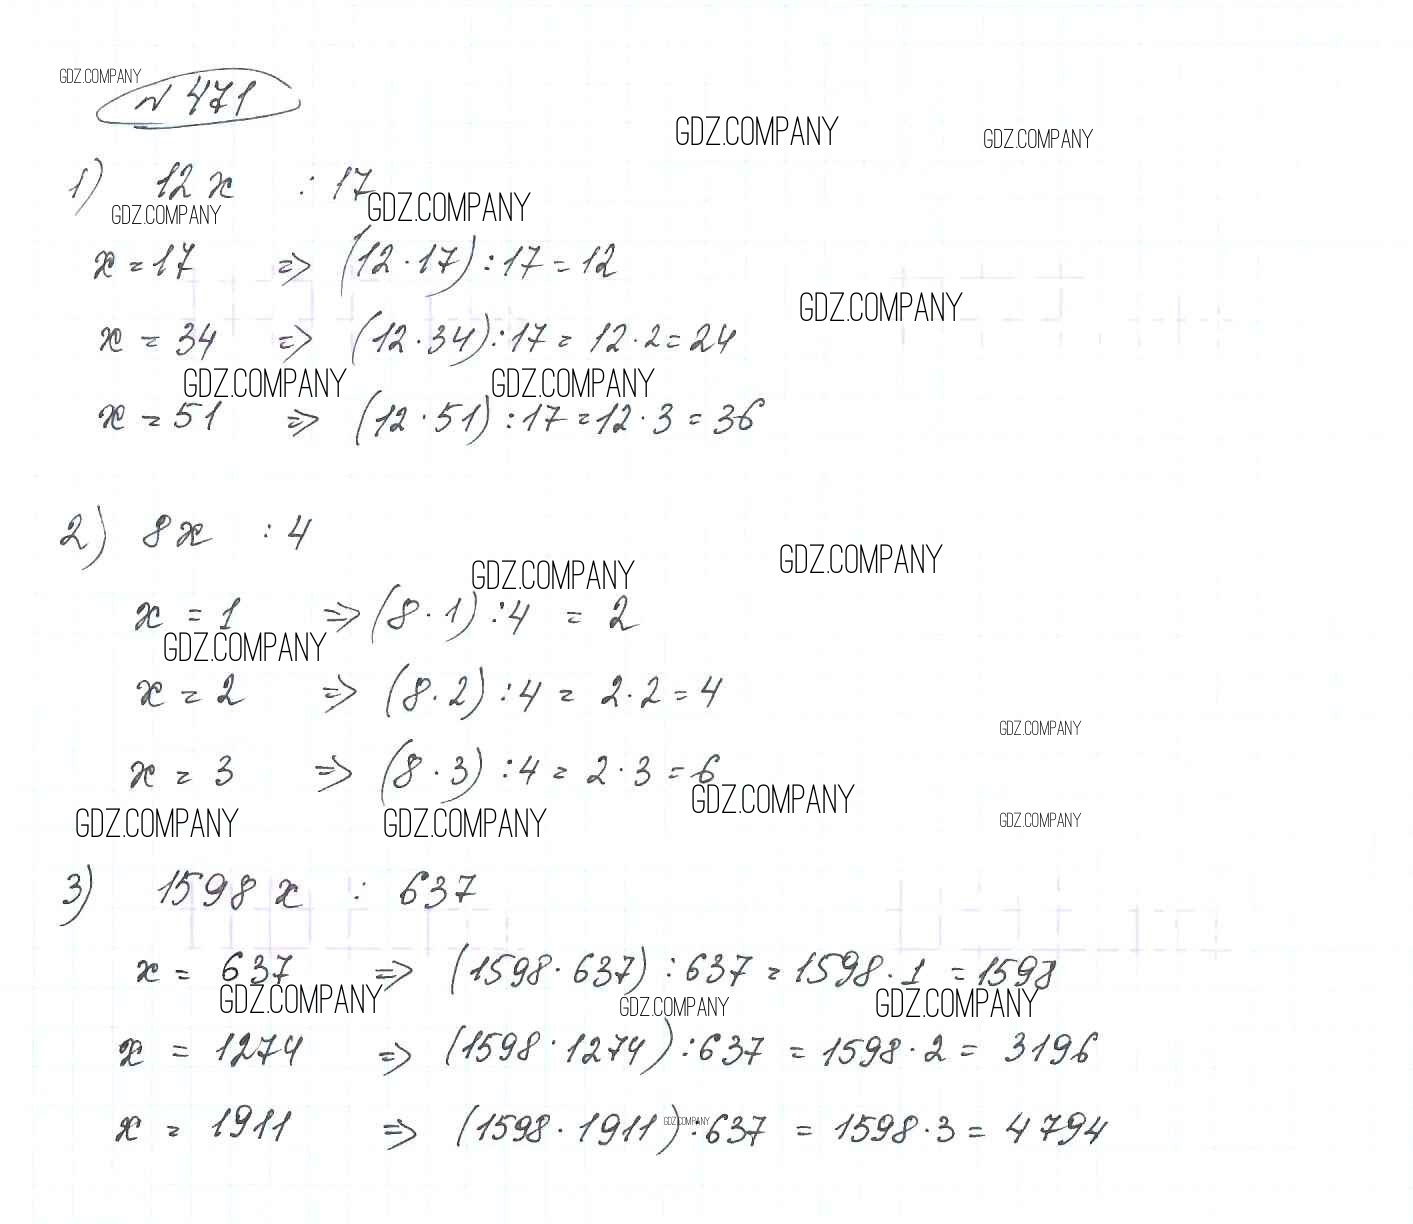 GDZ.COMPANY
№ 471
GDZ.COMPANY
GDZ.COMPANY
1) 12x : 17
GDZ.COMPANY
GDZ.COMPANY
x = 17 => (12 · 17) : 17 = 12
GDZ.COMPANY
x = 34 => (12 · 34) : 17 = 12 · 2 = 24
GDZ.COMPANY
GDZ.COMPANY
x = 51 => (12 · 51) : 17 = 12 · 3 = 36
2) 8x : 4
GDZ.COMPANY
GDZ.COMPANY
x = 1 => (8 · 1) : 4 = 2
GDZ.COMPANY
x = 2 => (8 · 2) : 4 = 2 · 2 = 4
GDZ.COMPANY
x = 3 => (8 · 3) : 4 = 2 · 3 = 6
GDZ.COMPANY
GDZ.COMPANY
GDZ.COMPANY
GDZ.COMPANY
3) 1598x : 637
x = 637 => (1598 · 637) : 637 = 1598 · 1 = 1598
GDZ.COMPANY
GDZ.COMPANY
GDZ.COMPANY
x = 1274 => (1598 · 1274) : 637 = 1598 · 2 = 3196
GDZ.COMPANY
x = 1911 => (1598 · 1911) : 637 = 1598 · 3 = 4794